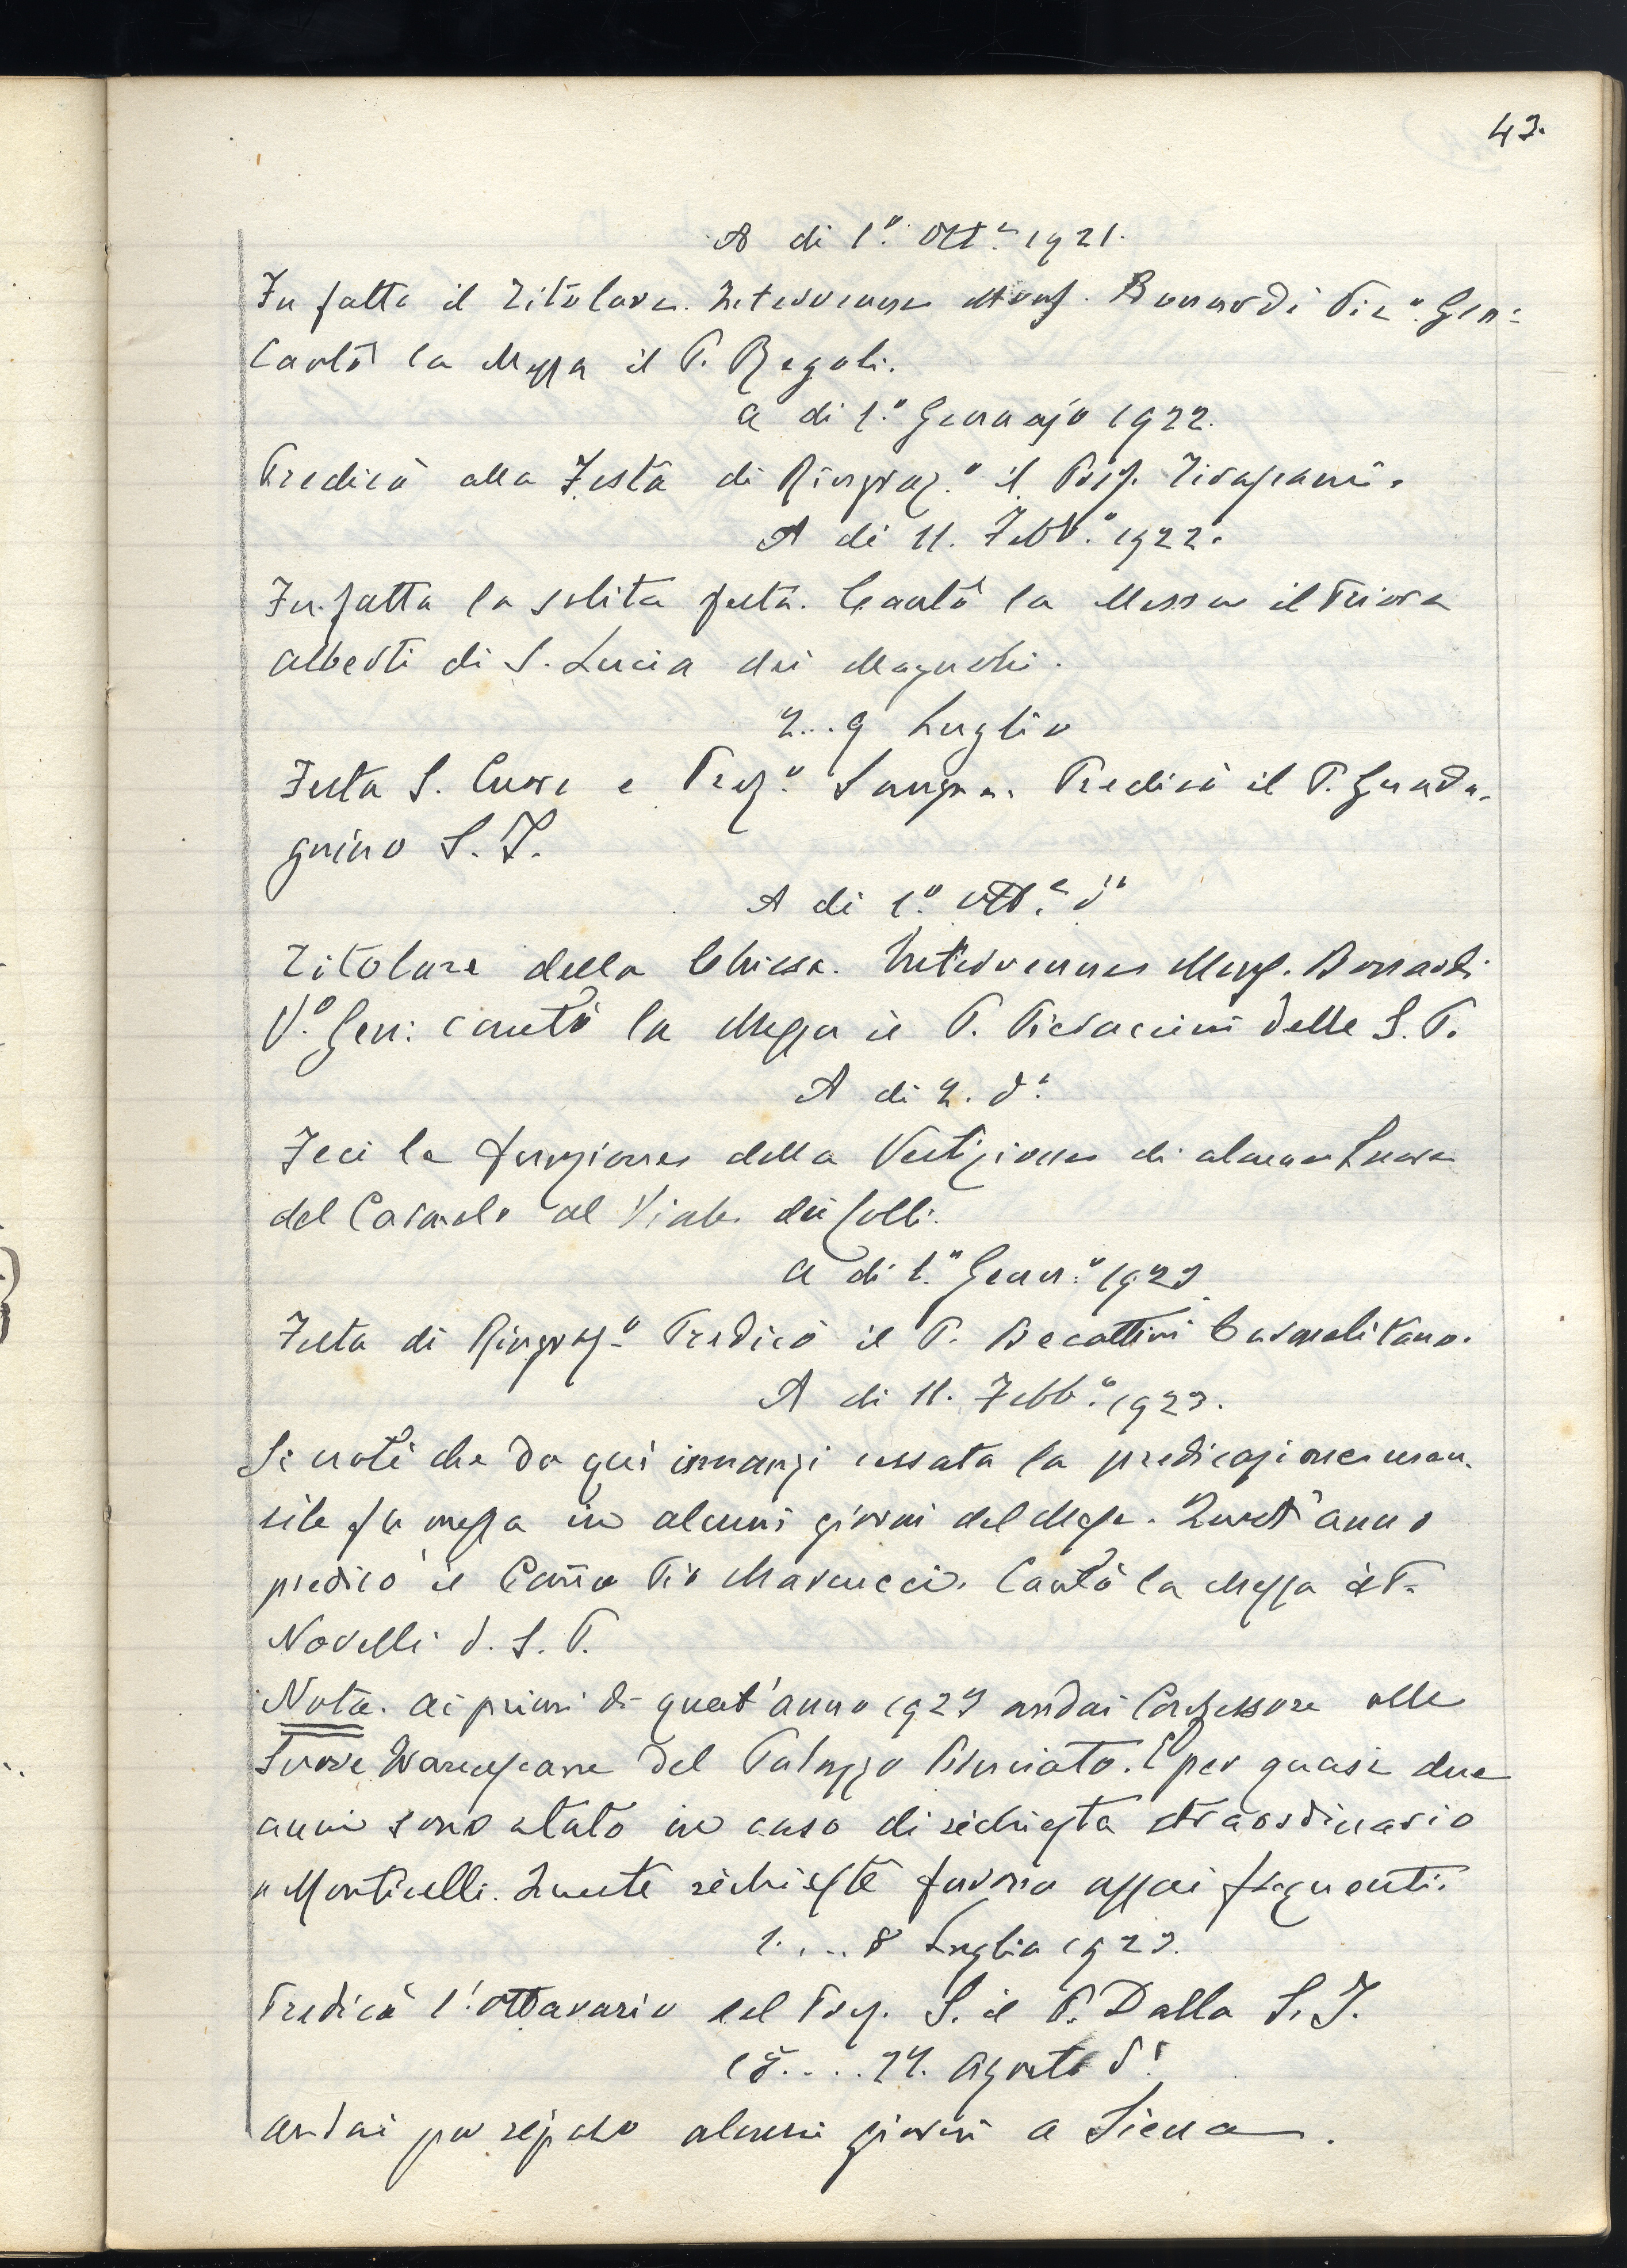 43.
A di 1.º Ott.e 1921.
Fu fatto il Titolare. Intervenne Monsg. Bonardi Vic.º Gen:
Cantò la Messa il P. Regoli.
A di 1.º Gennajo 1922.
Predicò alla Festa di Ringraz.º il
A di 11. Febb.º 1922.
Fu fatta la solita festa. Cantò la Messa il Priore
Alberti di S. Lucia dei Magnoli.
2...9 Luglio
Festa S. Cuore e Prez.º Sangue. Predicò il P. Guada-
gnino S. J.
A di 1.º Ott.e dº
Titolare della Chiesa. Intervenne Monsg. Bonardi
V.º Gen: cantò la Messa il P. delle S. P.
A di 2. dº.
Feci la funzione della Vestizione di alcune Suore
del Carmelo al Viale dei Colli.
A di 1.º Genn.º 1923
Festa di Ringraz.º Predicò il P. Becattini Carmelitano.
A di 11. Febb.º 1923.
Si noti che da qui innanzi cessata la predicazione men-
sile fu messa in alcuni giorni del Mese. Quest'anno
predicò il Pio Marcucci. Cantò la Messa il P.
Novelli d. S. P.
Nota. Ai primi di quest'anno 1923 andai Confessore alle
Suore del Palazzo Bruciato. E per quasi due
anni sono stato in caso di richiesta straordinario
a Monticelli. Queste richieste furono assai frequenti.
1....8 Luglio 1923.
Predicò l'Ottavario del Prez. S. il P. Dalla S. J.
.... Agosto dº
Andai per riposo alcuni giorni a Siena.